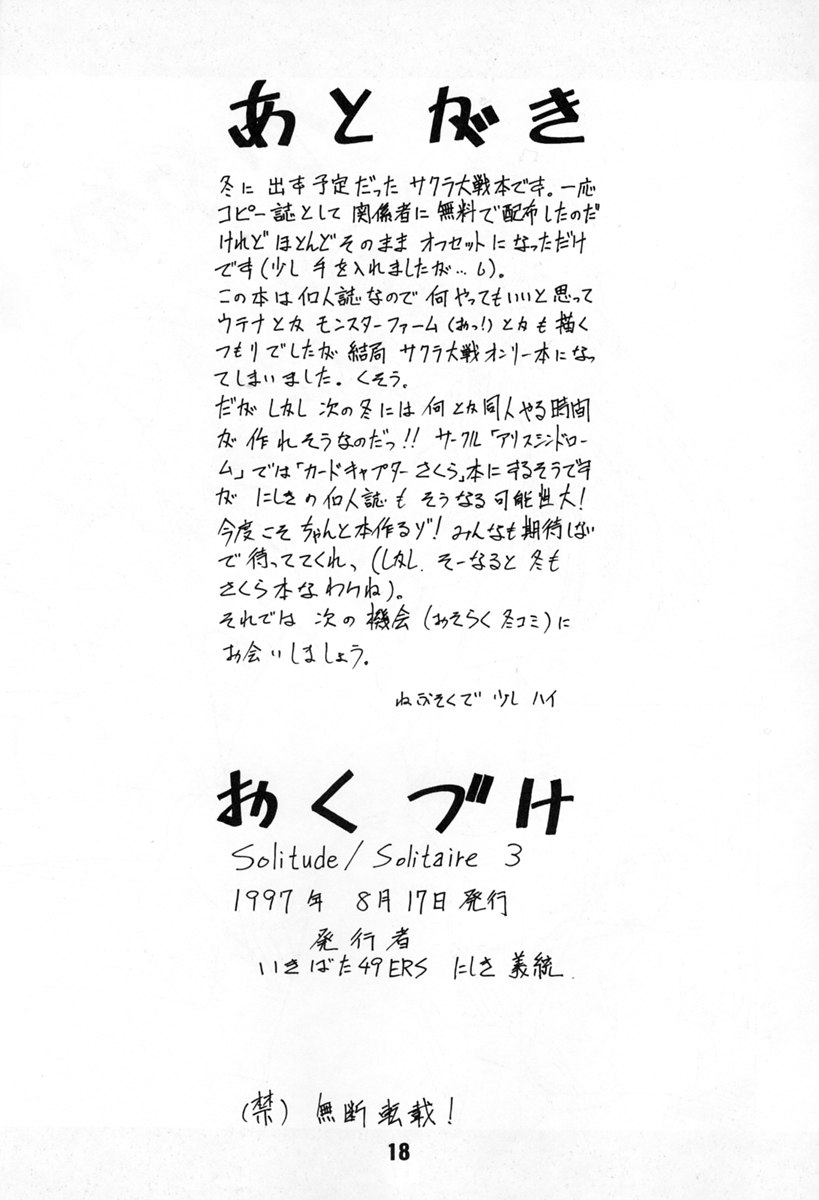 あとがき
冬に出す予定だったサクラ大戦本です。一応
コピー誌として関係者に無料で配布したのだ
けれどほとんどそのままオフセットになっただけ
です(少し手を入れましたが…し)。
この本は個人誌なので何やってもいいと思って
ウテナとかモンスターファーム(おっ!)とかも描く
つもりでしたが結局サクラ大戦オンリー本になっ
てしまいました。くそう。
だがしかし次の冬には何とか同人やる時間
が作れそうなのだっ!!サークル「アリスシンドロー
ム」では「カードキャプターさくら」本にするそうです
がにしきの個人誌もそうなる可能性大!
今度こそちゃんと本作るゾ!みんなも期待しない
で待っててくれ、(しかし、そーなると冬も
さくら本なわけね)。
それでは次の機会(おそらく冬コミ)に
お会いしましょう。
ねぶそくで少しハイ
おくづけ
Solitude/Solitaire 3
1997年 8月17日発行
発行者
いきばた49ERS にしき義統
(禁) 無断転載!
18